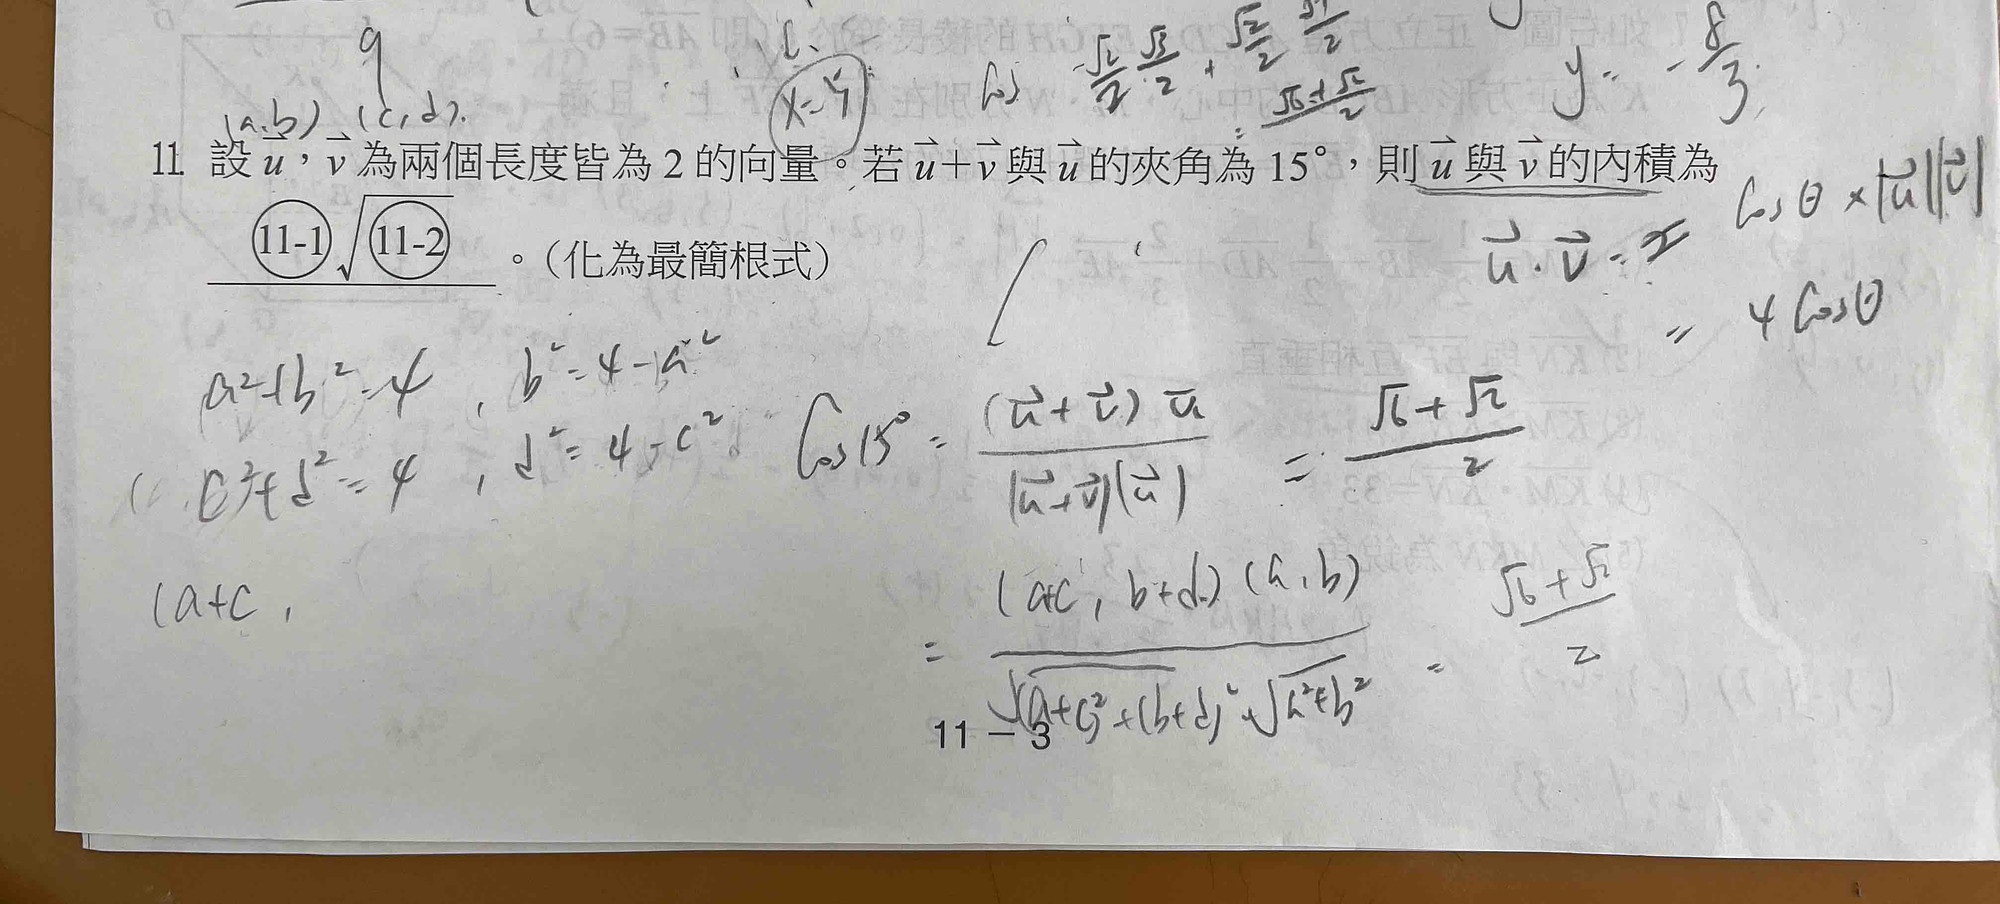 9
x=4
cos √2/2 √3/2 + √2/2 1/2
= √6+√2/2
y = -8/3
(a,b) (c,d).
11. 設 u⃗，v⃗ 為兩個長度皆為 2 的向量。若 u⃗+v⃗ 與 u⃗ 的夾角為 15°，則 u⃗ 與 v⃗ 的內積為
(11-1)√(11-2) 。（化為最簡根式）
u⃗·v⃗ = cosθ × |u⃗||v⃗|
= 4cosθ
a²+b²=4 , b²=4-a²
c²+d²=4 , d²=4-c²
cos15° = (u⃗+v⃗)u⃗ / |u⃗+v⃗||u⃗| = √6+√2 / 2
(a+c,
= (a+c, b+d)(a,b) / √(a+c)²+(b+d)² √a²+b² = √6+√2 / 2
11 − 3